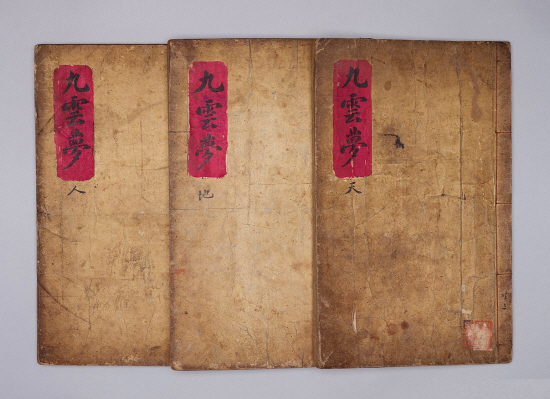 九雲夢
天
九雲夢
地
九雲夢
人